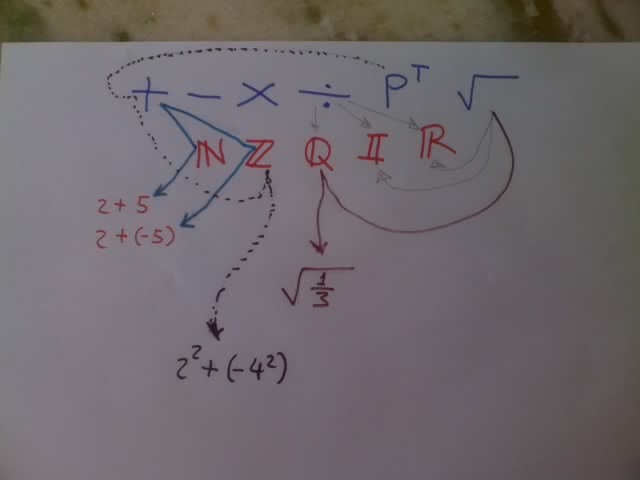 + − × ÷ Pᵀ √
ℕ ℤ ℚ 𝕀 ℝ
2 + 5
2 + (-5)
√(1/3)
2² + (-4²)